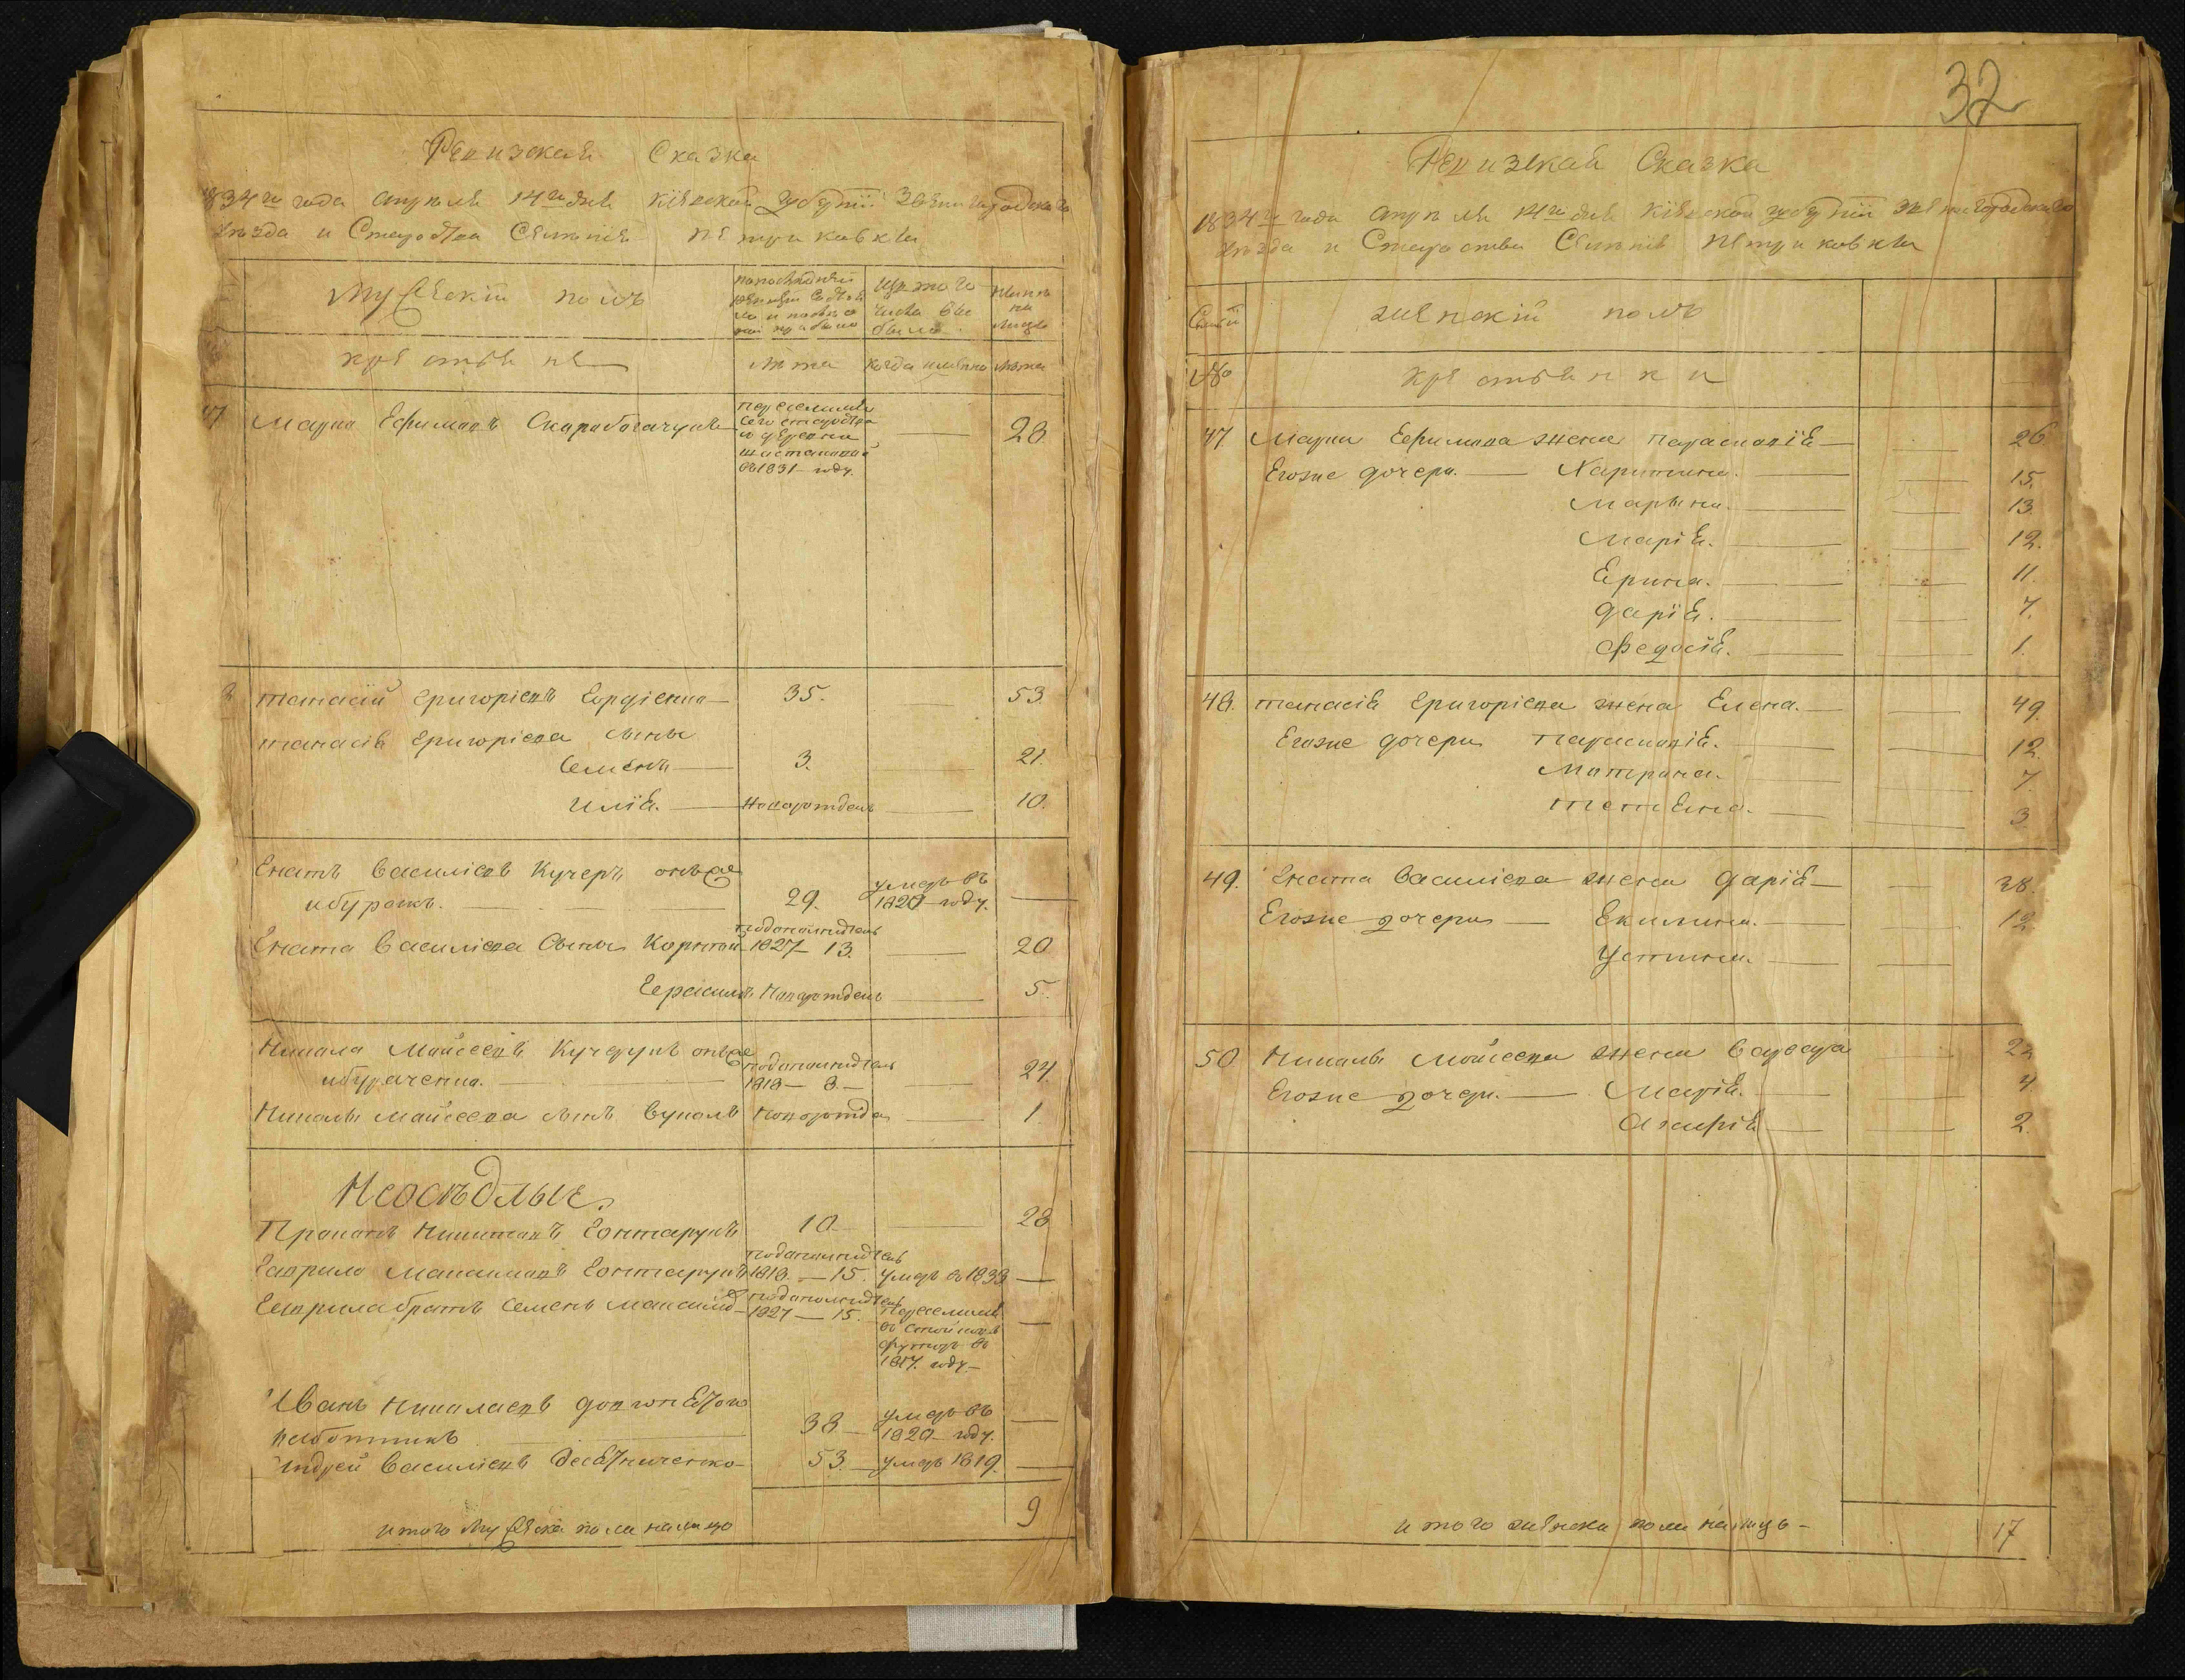 Ревизская Сказка
1834го года апреля 14го дня Кіевской губерніи Звенигородскаго
уезда и Староства Селенія Петриковки
Мужескій полъ
по последней ревизіи состояло и после оной прибыло
Изъ того числа выбыло
ныне на лицо
крестьяне
лета
когда именно
лета
47 Марко Ефимовъ Скоробогачукъ
переселился сего староства из деревни
въ 1831 году.
28
Танасій Григоріевъ Гордіенко 35. 53.
Танасія Григоріева сыны
Семенъ 3. 21.
Илія. Новорожденъ 10.
Гнатъ Василіевъ Кучеръ онъже
и бурякъ. 29. умеръ въ 1820 году.
Гната Василіева Сыны Корней подополнидень 1827 13. 20
Герасимъ Новорожденъ 5.
Никола Мойсеевъ Кучерукъ онъже
и буряченко. подополнидень 1818 — 8 — 24.
Николы Мойсеева сынъ Вуколъ Новорожде 1
Неоседлые.
Прокопъ Никитовъ Гонтарукъ 10. 28
Гаврило Максимовъ Гонтарукъ подополнидень 1818 — 15. умеръ въ 1833
Гаврила братъ Семенъ Максимо подополнидень 1827 — 15. переселился
въ
футоръ въ
1817. году
Иванъ Николаевъ
работникъ 38 умеръ въ 1820 году.
Андрей Василіевъ Десятниченко 53. умеръ 1819.
итого Мужеска пола налицо 9
32
Ревизская Сказка
1834го года апреля 14го дня Кіевской губерніи Звенигородскаго
уезда и Староства Селенія Петриковки
Семьи
женскій полъ
№
крестьянки
47 Марка Ефимова жена Параскевія 26
Егоже дочери Харитина. 15.
Марына. 13.
Марія. 12.
Ерина. 11.
Дарія. 7.
Федосія. 1.
48. Танасія Григоріева жена Елена. 49.
Егоже дочери Параскевія. 12.
Матрона. 7.
Татяна. 3
49. Гната Василіева жена Дарія 38.
Егоже дочери Екилина. 12
Устина.
50 Николы Мойсеева жена Варвара
Егоже дочери. Марія. 4.
Агафія 2.
итого женска пола налицо 17